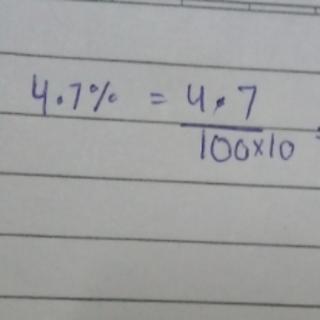 4.7% = 4.7
100×10 =